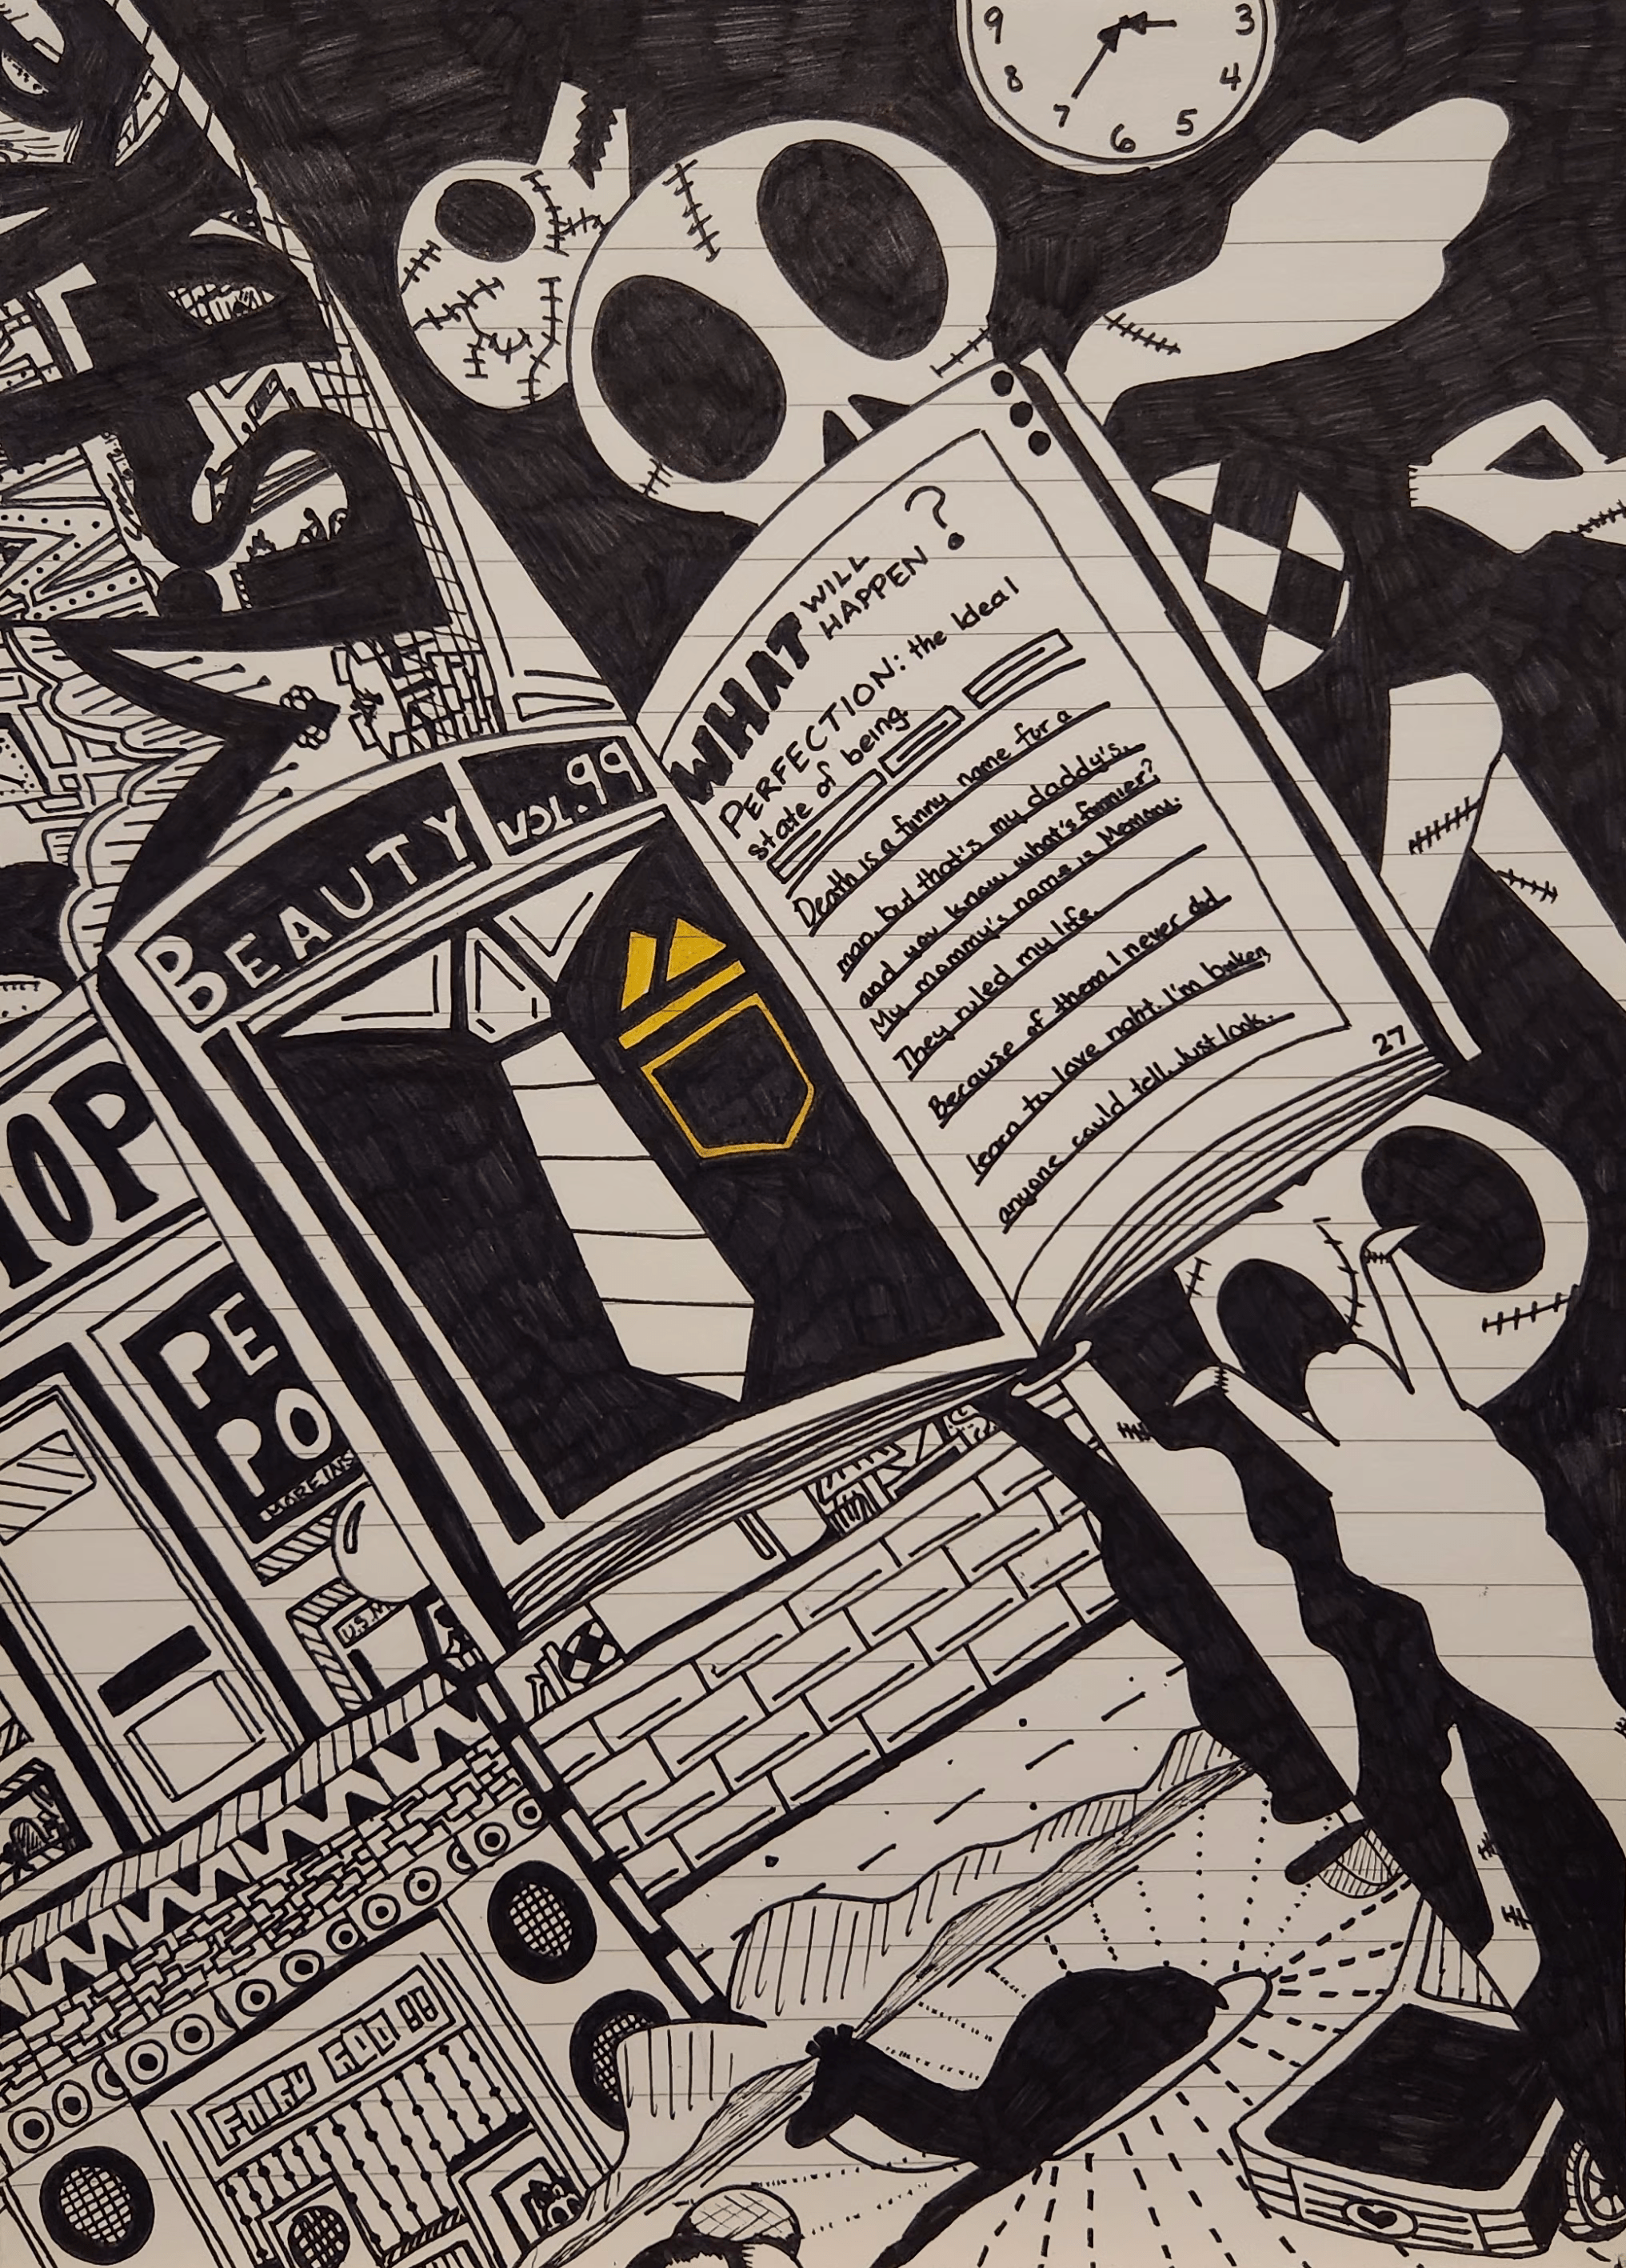 9 3
8 4
7 6 5
WHAT WILL HAPPEN?
PERFECTION: the Ideal
state of being.
Death is a funny name for a
man, but that's my daddy's.
and you know what's funnier?
My mommy's name is Memory.
They ruled my life.
Because of them, I never did
learn to love right. I'm broken,
anyone could tell. Just look.
27
BEAUTY
VOL. 99
OP
PE
PO
MORE INS
U.S.M